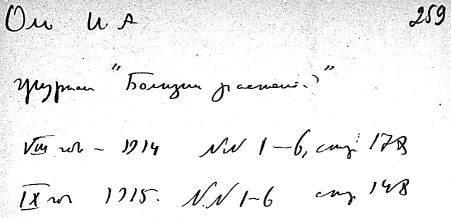 Ол И А 259
журнал "Болезни растений"
VIII год – 1914 N.N 1–6, стр. 178
IX год 1915. N.N 1–6 стр 148